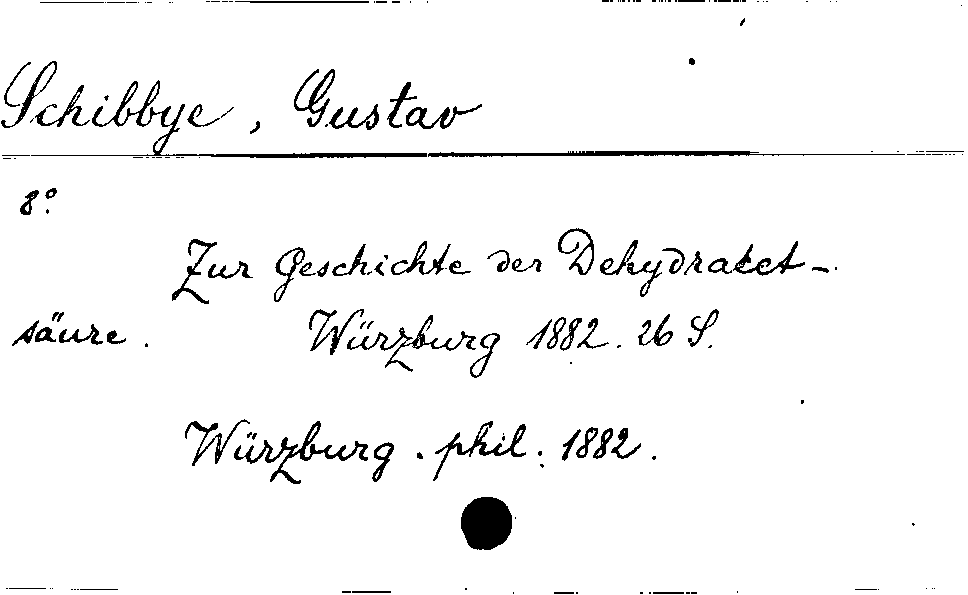 Schibbye, Gustav
8°.
Zur Geschichte der Dehydratet-
säure. Würzburg 1882. 26 S.
Würzburg. phil. 1882.